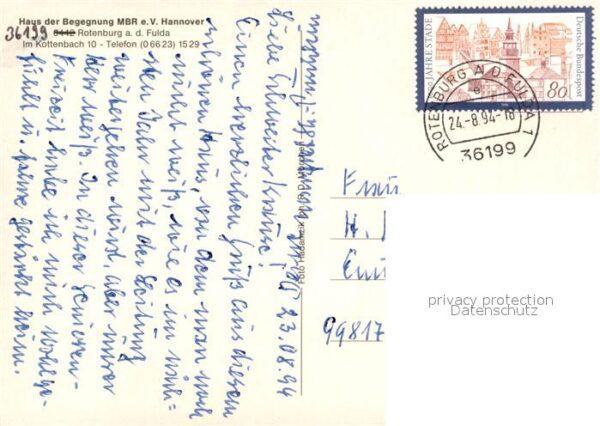 Haus der Begegnung MBR e.V. Hannover
36199 6442 Rotenburg a. d. Fulda
Im Kottenbach 10 - Telefon (0 66 23) 15 29
23.08.94
Liebe Schwester
Einen herzlichen Gruß aus diesem
schönen Haus, von dem man noch
nicht weiß, wie es im näch=
sten Jahr mit der Leitung
weitergehen wird, aber unser
Herr weiß. In dieser
Freizeit habe ich mich
und
Foto
Frau
H.
99817
JAHRE STADE
Deutsche Bundespost
80
ROTENBURG A D FULDA 1
a
24.-8.94-18
36199
privacy protection
Datenschutz